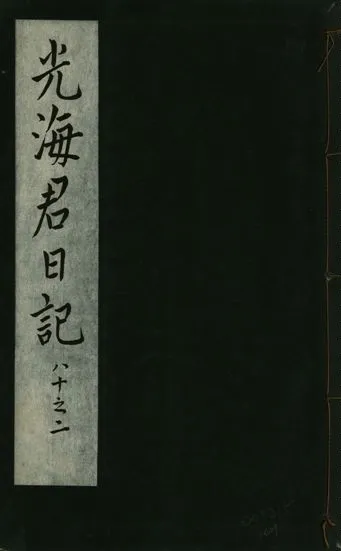 光海君日記 八十之二